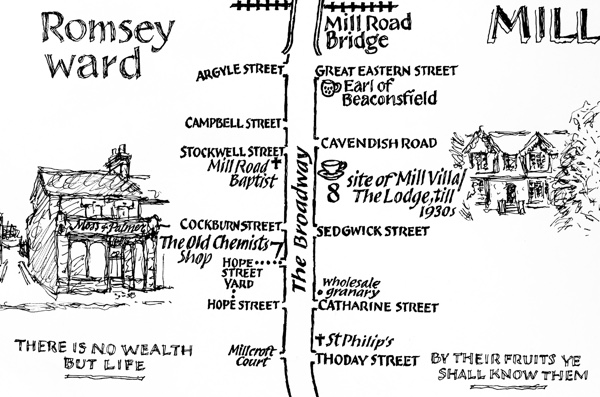 Romsey
ward
Mill Road
Bridge
MILL
ARGYLE STREET
GREAT EASTERN STREET
Earl of
Beaconsfield
CAMPBELL STREET
CAVENDISH ROAD
STOCKWELL STREET
Mill Road
Baptist
The Broadway
8
site of Mill Villa/
The Lodge, till
1930s
Moss & Palmer
COCKBURN STREET
SEDGWICK STREET
The Old Chemists
Shop
7
HOPE
STREET
YARD
wholesale
granary
HOPE STREET
CATHARINE STREET
St Philip's
Millcroft
Court
THODAY STREET
THERE IS NO WEALTH
BUT LIFE
BY THEIR FRUITS YE
SHALL KNOW THEM